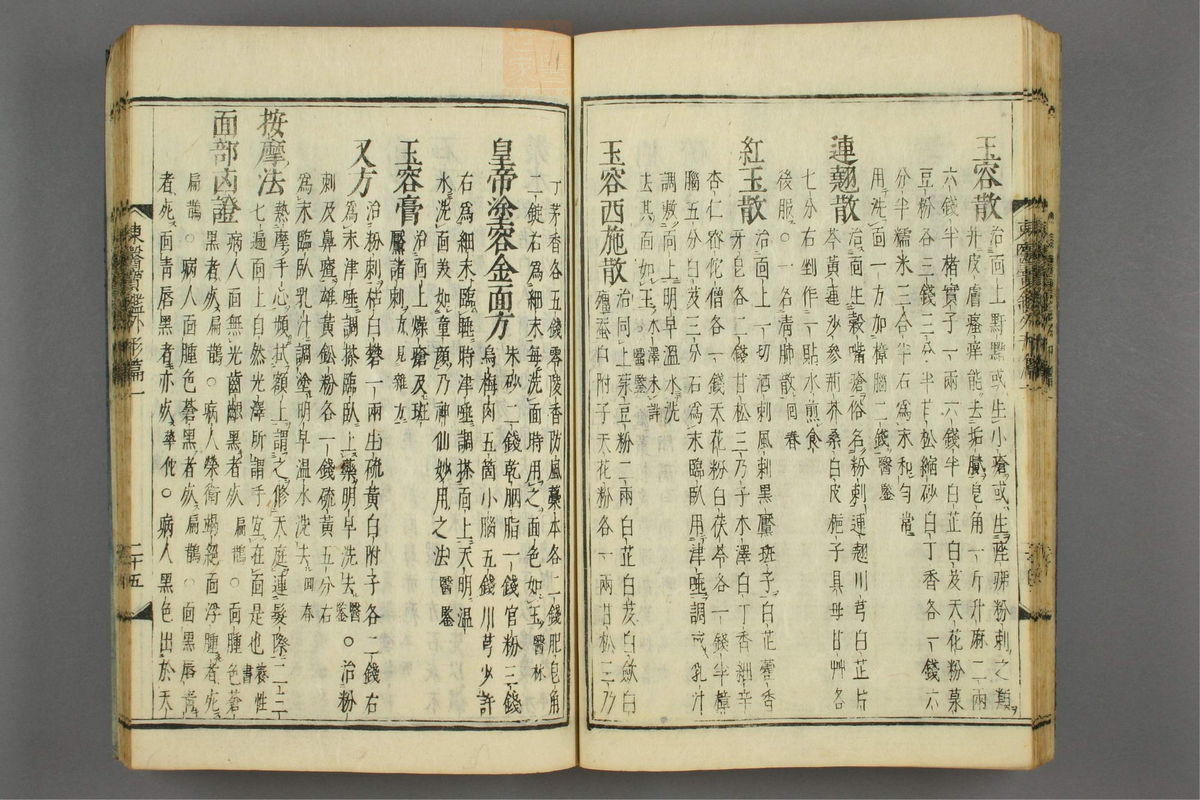 玉容散治面上黚䵟或生小瘡或生痤痱粉刺之類
并皮膚瘙痒能去垢膩皂角一斤升麻二兩
六錢半楮實子一兩六錢半白芷白芨天花粉菉
豆粉各三錢二分半甘松縮砂白丁香各一錢六
分半糯米三合半右爲末和勻常
用洗面一方加樟腦二錢醫鑒
連翹散治面生穀嘴瘡俗名粉刺連翹川芎白芷片
芩黃連沙參荊芥桑白皮梔子貝母甘艸各
七分右剉作一貼水煎食
後服○一名淸肺散回春
紅玉散治面上一切酒刺風刺黑黶斑子白芷藿香
牙皂各二錢甘松三乃子木澤白丁香細辛
杏仁密佗僧各一錢天花粉白茯苓各一錢半樟
腦五分白芨三分右爲末臨臥用津唾調或乳汁
調敷面上明早溫水洗
去其面如玉木澤未詳醫鑒
玉容西施散治同上菉豆粉二兩白芷白芨白斂白
殭蠶白附子天花粉各一兩甘松三乃
丁茅香各五錢零陵香防風藁本各二錢肥皂角
二錠右爲細末每洗面時用之面色如玉醫林
皇帝塗容金面方朱砂二錢乾胭脂一錢官粉三錢
烏梅肉五箇小腦五錢川芎少許
右爲細末臨睡時津唾調搽面上天明溫
水洗面美如童顏乃神仙妙用之法醫鑒
玉容膏治面上燥瘡及班
黶諸刺方見雜方
又方治粉刺枯白礬一兩生硫黃白附子各二錢右
爲末津唾調搽臨臥上藥明早洗去醫鑒○治粉
刺及鼻齇雄黃鉛粉各一錢硫黃五分右
爲末臨臥乳汁調塗明早溫水洗去回春
按摩法熱摩手心頻拭額上謂之修天庭連髮際二三
七遍面上自然光澤所謂手宜在面是也養性書
面部凶證病人面無光齒齦黑者死扁鵲○面腫色蒼
黑者死扁鵲○病人榮衛竭絕面浮腫者死
扁鵲○病人面腫色蒼黑者死扁鵲○面黑唇靑
者死面靑唇黑者亦死華佗○病人黑色出於天
東醫寶鑑外形篇一
二十五